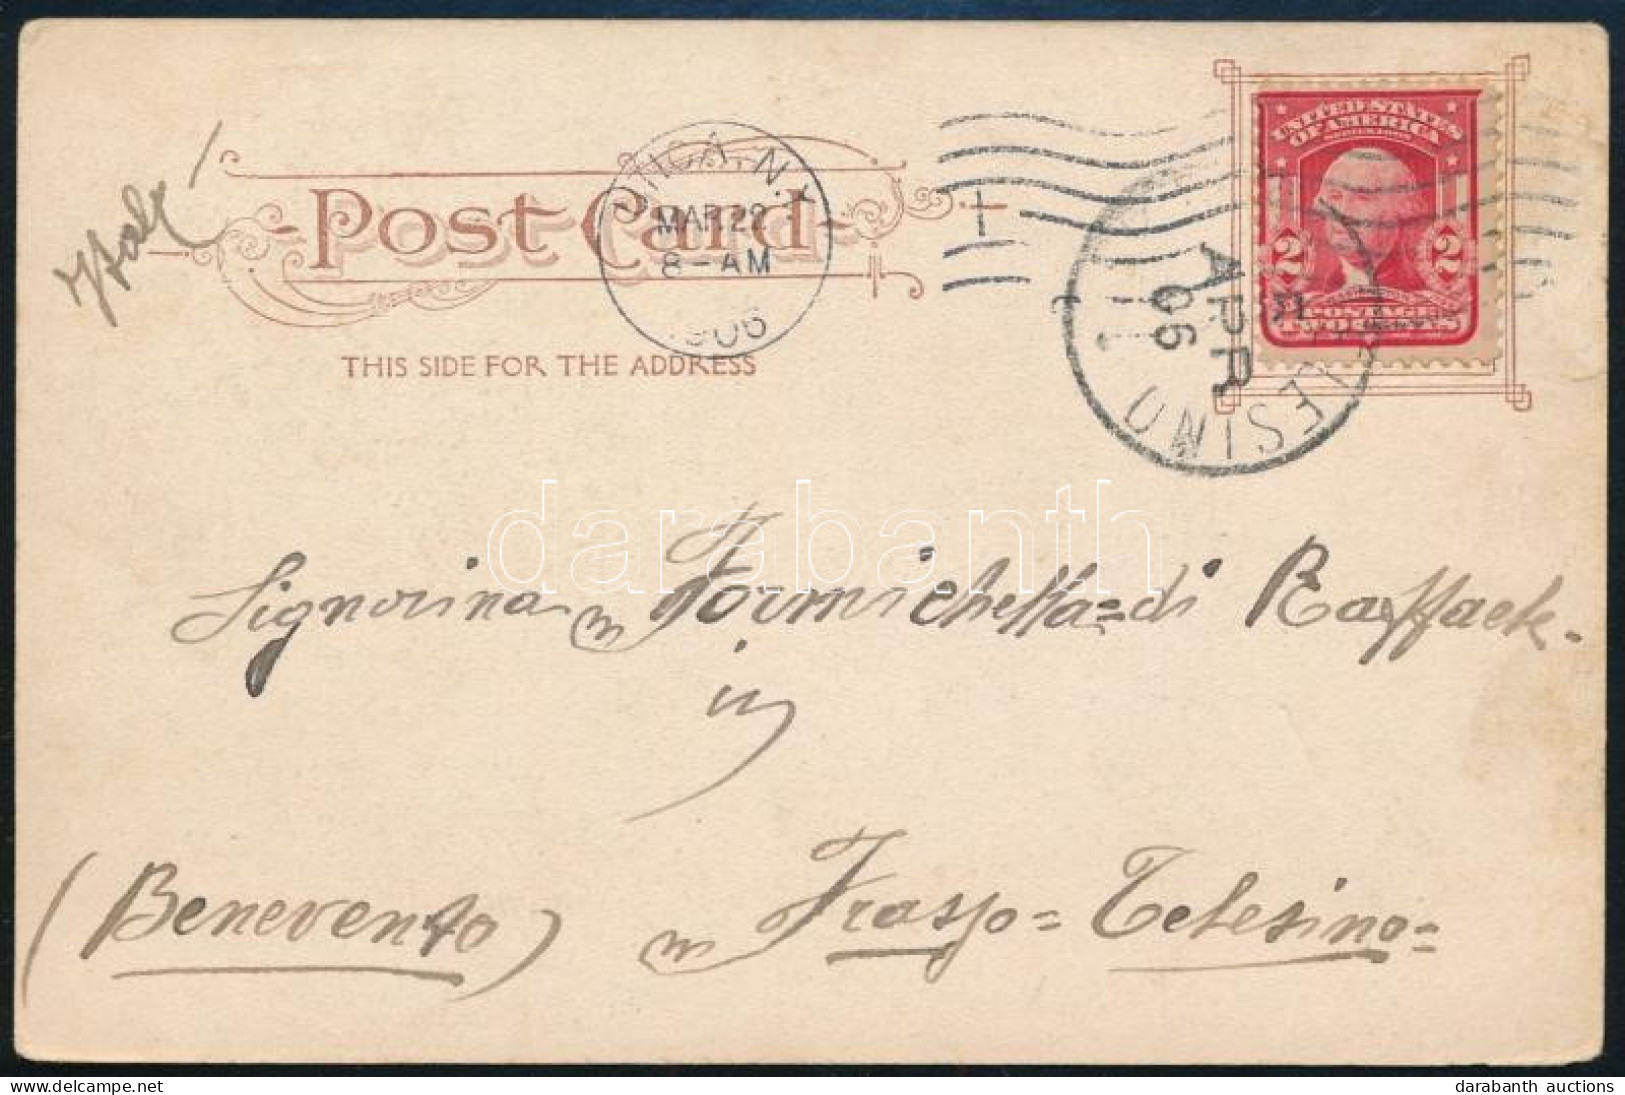 Italy
Post Card
THIS SIDE FOR THE ADDRESS
UTICA, N.Y.
MAR 22
8-AM
1906
UNITED STATES
OF AMERICA
2 2
POSTAGE
TWO CENTS
APR
06
darabanth
Signorina Formichella=di Raffaele.
in
(Benevento) Frasso=Telesino=
www.delcampe.net
darabanth auctions